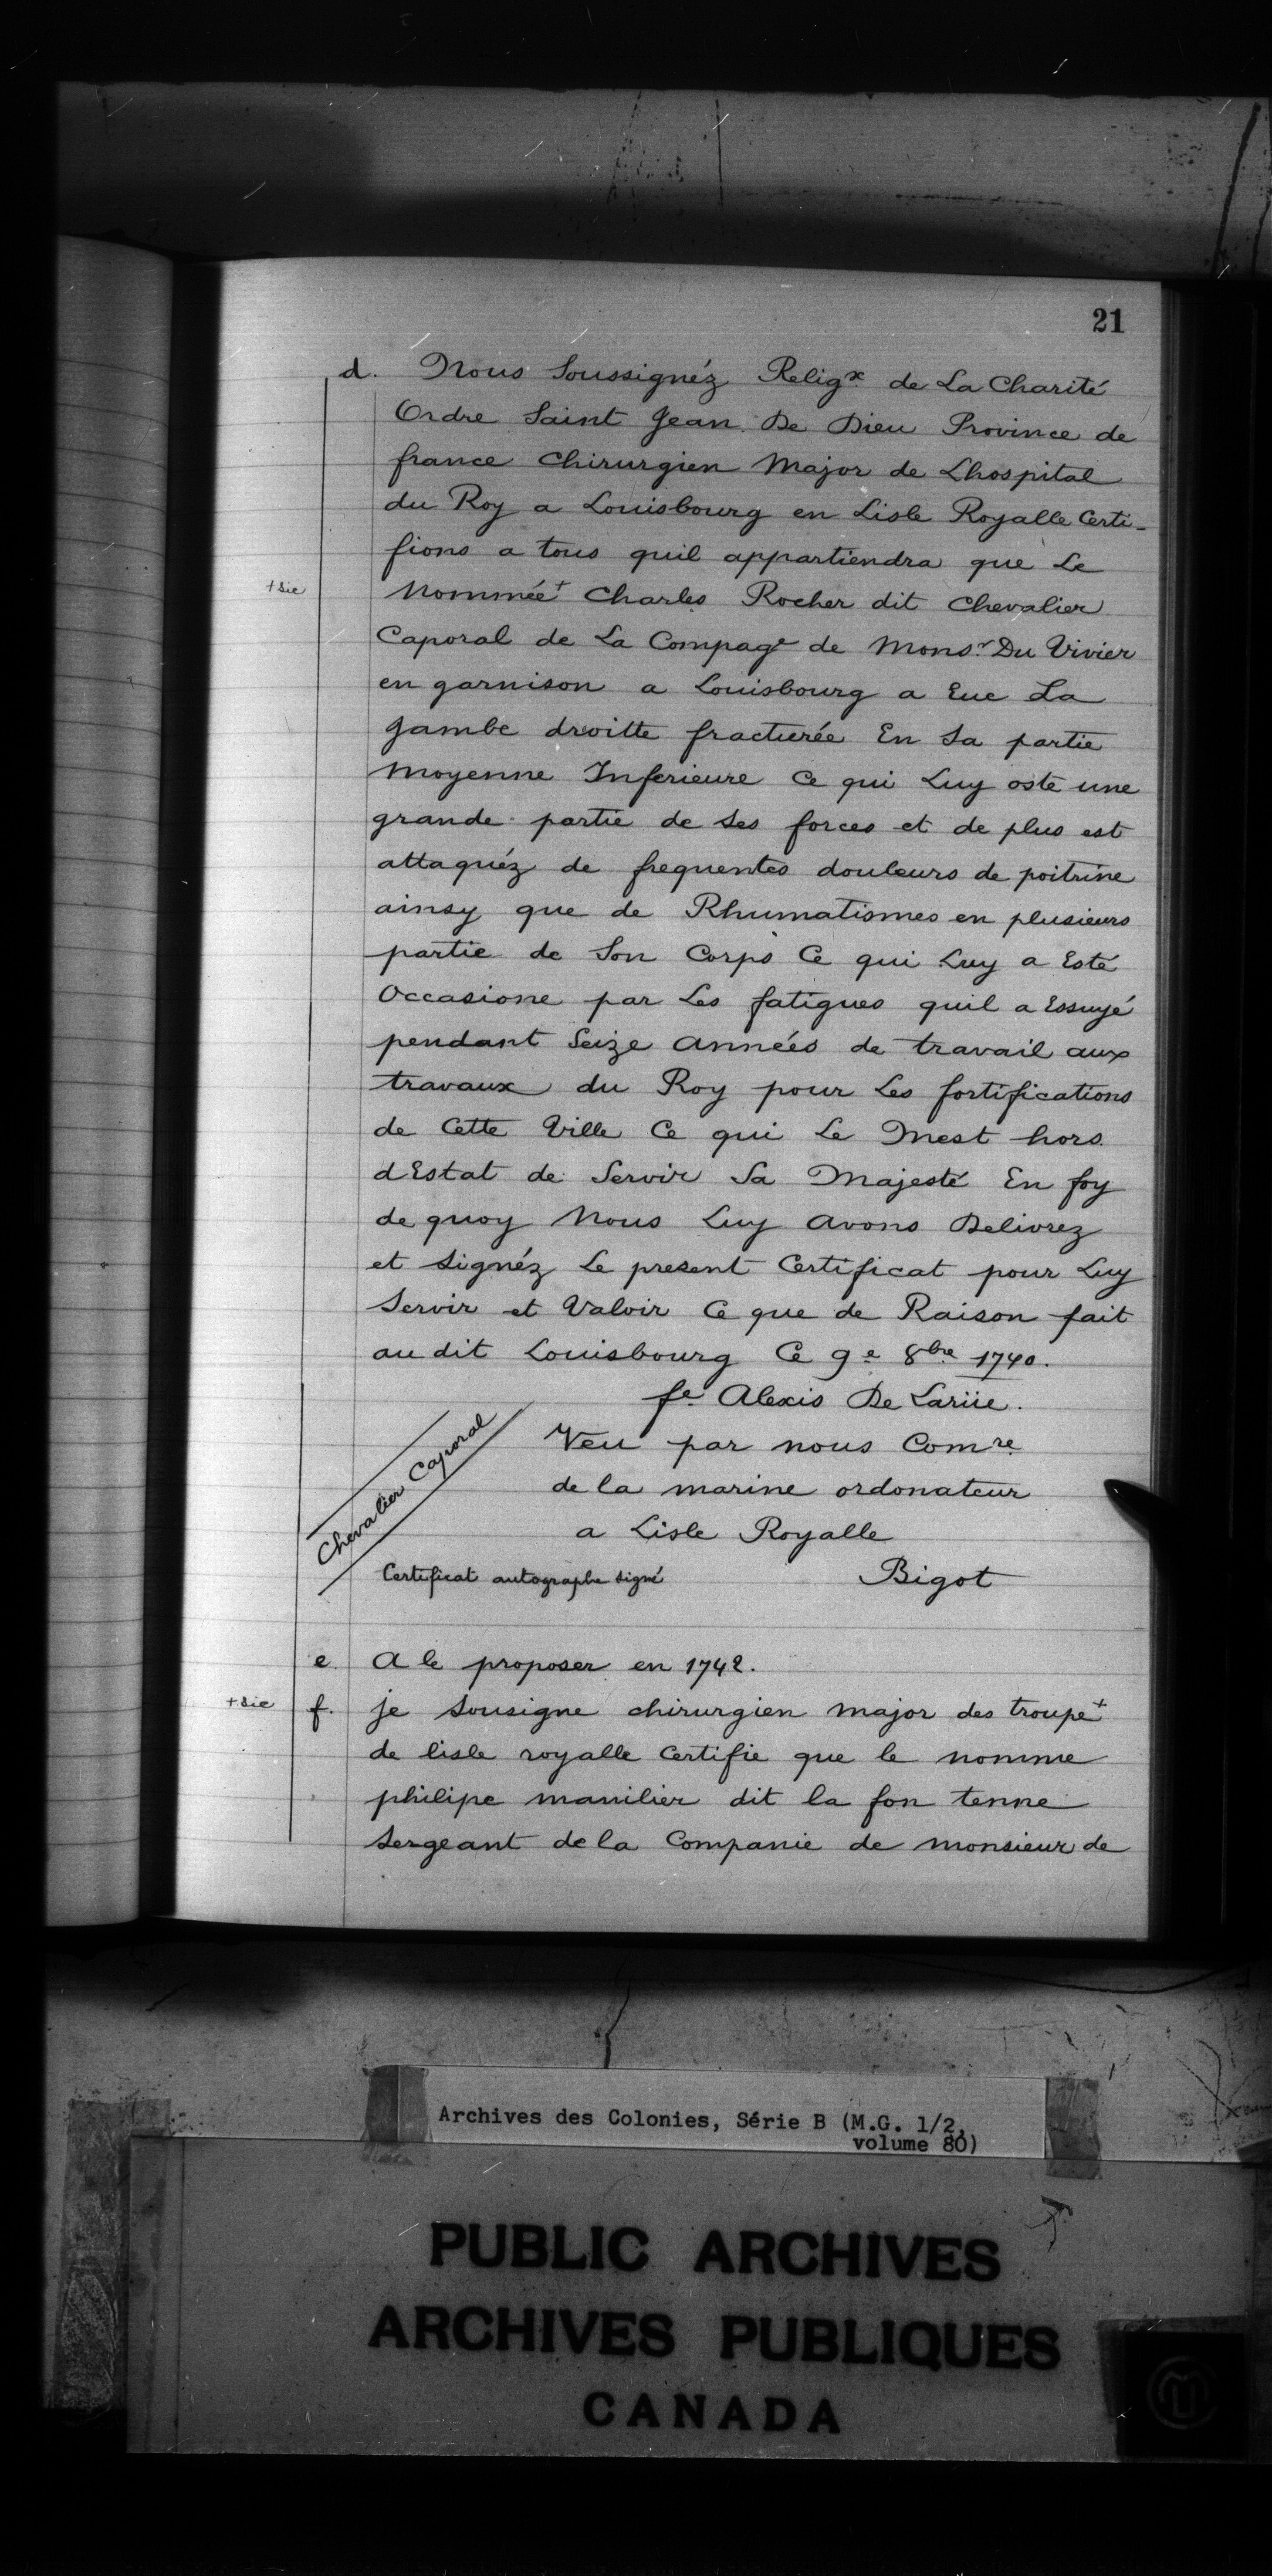 21
d. Nous Soussignéz Religx de La Charité
Ordre Saint Jean De Dieu Province de
france Chirurgien Major de Lhospital
du Roy a Louisbourg en Lisle Royalle Certi-
fions a tous quil appartiendra que Le
+ sic Nommée+ Charles Rocher dit Chevalier
Caporal de La Compage de Monsr Du Vivier
en garnison a Louisbourg a Eue La
Jambe droitte fracturée En Sa partie
Moyenne Inferieure Ce qui Luy oste une
grande partie de Ses forces et de plus est
attaquéz de frequentes douleurs de poitrine
ainsy que de Rhumatismes en plusieurs
partie de Son Corps Ce qui Luy a Esté
Occasione par Les fatigues quil a Essuyé
pendant Seize Années de travail aux
travaux du Roy pour Les fortifications
de Cette Ville Ce qui Le Mest hors
dEstat de Servir Sa Majesté En foy
de quoy Nous Luy Avons Delivrez
et Signéz Le present Certificat pour Luy
Servir et Valoir Ce que de Raison fait
au dit Louisbourg Ce 9e 8bre 1740.
fe Alexis De Lariie.
Chevalier Caporal
Veu par nous Comre
de la marine ordonateur
a Lisle Royalle
Certificat autographe signé Bigot
e. A le proposer en 1742.
+ sic f. je Sousigne chirurgien major des troupe+
de lisle royalle Certifie que le nomme
philipe manilier dit la fon tenne
Sergeant de la Companie de monsieur de
Archives des Colonies, Série B (M.G. 1/2,
volume 80)
PUBLIC ARCHIVES
ARCHIVES PUBLIQUES
CANADA